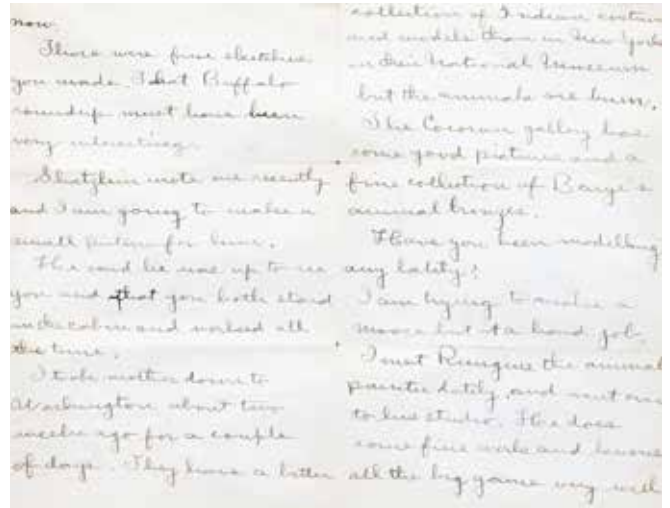 now.
Those were fine sketches
you made. That Buffalo
roundup must have been
very interesting.
wrote me recently
and I am going to make a
small picture for him.
He said he was up to see
you and that you both staid
in the cabin and worked all
the time.
I took mother down to
Washington about two
weeks ago for a couple
of days. They have a better
collection of Indian
and models than in New York
in their National Museum
but the animals are bum.
The Cocoran gallery has
some good pictures and a
fine collection of Barye's
animal bronzes.
Have you been modelling
any lately?
I am trying to make a
moose but it a hard job.
I met Rungius the animal
painter lately and went over
to his studio. He does
some fine work and knows
all the big game very well